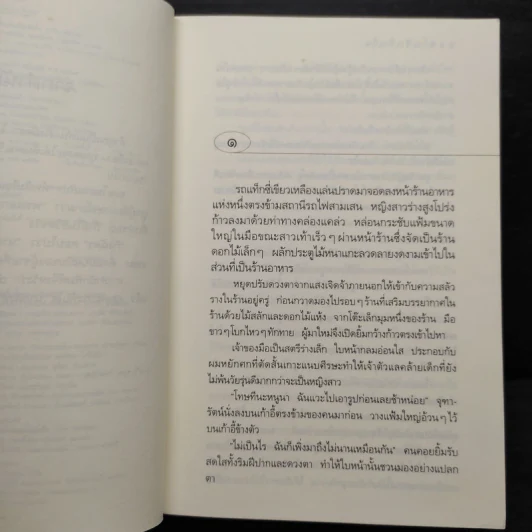 ๑
รถแท็กซี่เขียวเหลืองแล่นปราดมาจอดลงหน้าร้านอาหาร
แห่งหนึ่งตรงข้ามสถานีรถไฟสามเสน หญิงสาวร่างสูงโปร่ง
ก้าวลงมาด้วยท่าทางคล่องแคล่ว หล่อนกระชับแฟ้มขนาด
ใหญ่ในมือขณะสาวเท้าเร็วๆ ผ่านหน้าร้านซึ่งจัดเป็นร้าน
ดอกไม้เล็กๆ ผลักประตูไม้หนาแกะลวดลายงดงามเข้าไปใน
ส่วนที่เป็นร้านอาหาร
หยุดปรับดวงตาจากแสงเจิดจ้าภายนอกให้เข้ากับความสลัว
รางในร้านอยู่ครู่ ก่อนกวาดมองไปรอบๆ ร้านที่เสริมบรรยากาศใน
ร้านด้วยไม้สลักและดอกไม้แห้ง จากโต๊ะเล็กมุมหนึ่งของร้าน มือ
ขาวๆ โบกไหวๆ ทักทาย ผู้มาใหม่จึงเปิดยิ้มกว้างก้าวตรงเข้าไปหา
เจ้าของมือเป็นสตรีร่างเล็ก ใบหน้ากลมอ่อนใส ประกอบกับ
ผมหยักศกที่ตัดสั้นเกาะแนบศีรษะทำให้เจ้าตัวแลคล้ายเด็กที่ยัง
ไม่พ้นวัยรุ่นดีมากกว่าจะเป็นหญิงสาว
“โทษทีนะหนูนา ฉันแวะไปเอารูปก่อนเลยช้าหน่อย” จุฑา-
รัตน์นั่งลงบนเก้าอี้ตรงข้ามของคนมาก่อน วางแฟ้มใหญ่อ้วนๆ ไว้
บนเก้าอี้ข้างตัว
“ไม่เป็นไร ฉันก็เพิ่งมาถึงไม่นานเหมือนกัน” คนคอยยิ้มรับ
สดใสทั้งริมฝีปากและดวงตา ทำให้ใบหน้านั้นชวนมองอย่างแปลก
ตา